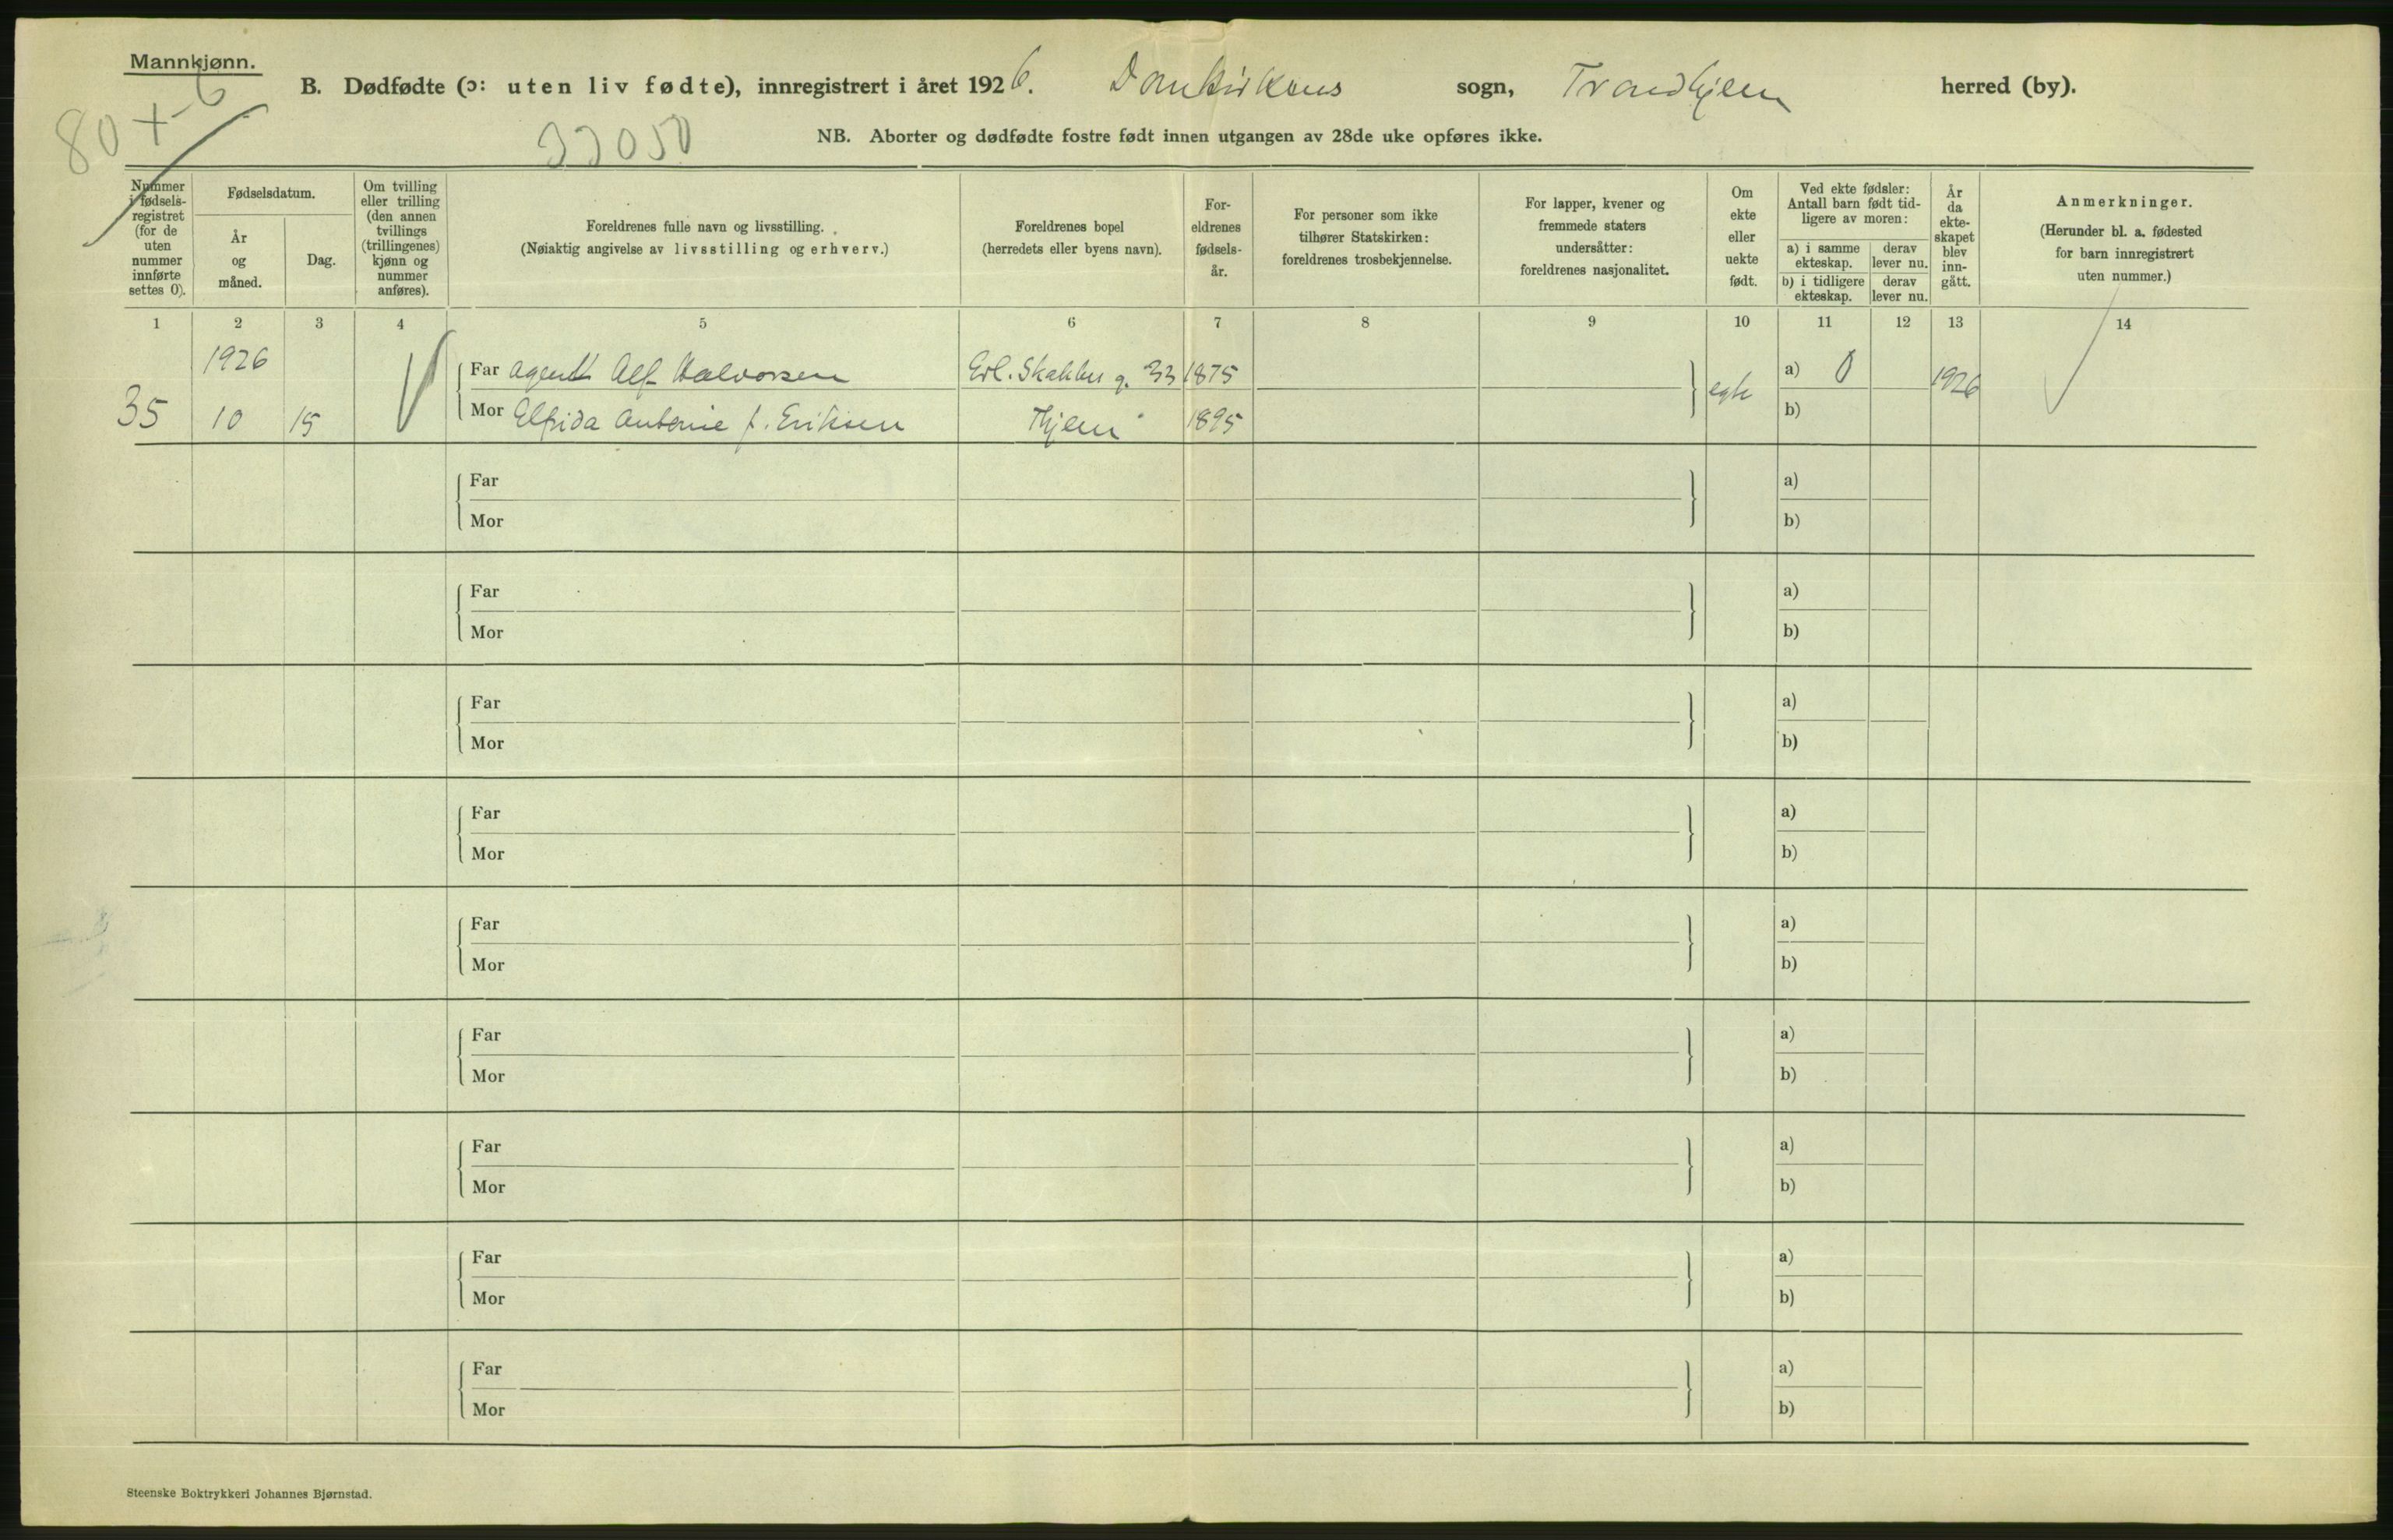 Mannkjønn.
B. Dødfødte (ɔ: uten liv fødte), innregistrert i året 1926. Domkirkens sogn, Trondhjem herred (by).
80 + 6
33050
NB. Aborter og dødfødte fostre født innen utgangen av 28de uke opføres ikke.
Nummer i fødsels-registret (for de uten nummer innførte settes 0).
Fødselsdatum.
År og måned.
Dag.
Om tvilling eller trilling (den annen tvillings (trillingenes) kjønn og nummer anføres).
Foreldrenes fulle navn og livsstilling.
(Nøiaktig angivelse av livsstilling og erhverv.)
Foreldrenes bopel
(herredets eller byens navn).
For-eldrenes fødsels-år.
For personer som ikke tilhører Statskirken: foreldrenes trosbekjennelse.
For lapper, kvener og fremmede staters undersåtter: foreldrenes nasjonalitet.
Om ekte eller uekte født.
Ved ekte fødsler: Antall barn født tid-ligere av moren:
a) i samme ekteskap.
derav lever nu.
b) i tidligere ekteskap.
derav lever nu.
År da ekte-skapet blev inn-gått.
Anmerkninger.
(Herunder bl. a. fødested for barn innregistrert uten nummer.)
1 2 3 4 5 6 7 8 9 10 11 12 13 14
1926 Far Agent Alf Halvorsen Erl. Skakkes g. 33 1875 a) 0 1926
35 10 15 Mor Elfrida Antonie f. Eriksen Thjem 1895 egte b)
Far a)
Mor b)
Far a)
Mor b)
Far a)
Mor b)
Far a)
Mor b)
Far a)
Mor b)
Far a)
Mor b)
Far a)
Mor b)
Far a)
Mor b)
Far a)
Mor b)
Steenske Boktrykkeri Johannes Bjørnstad.